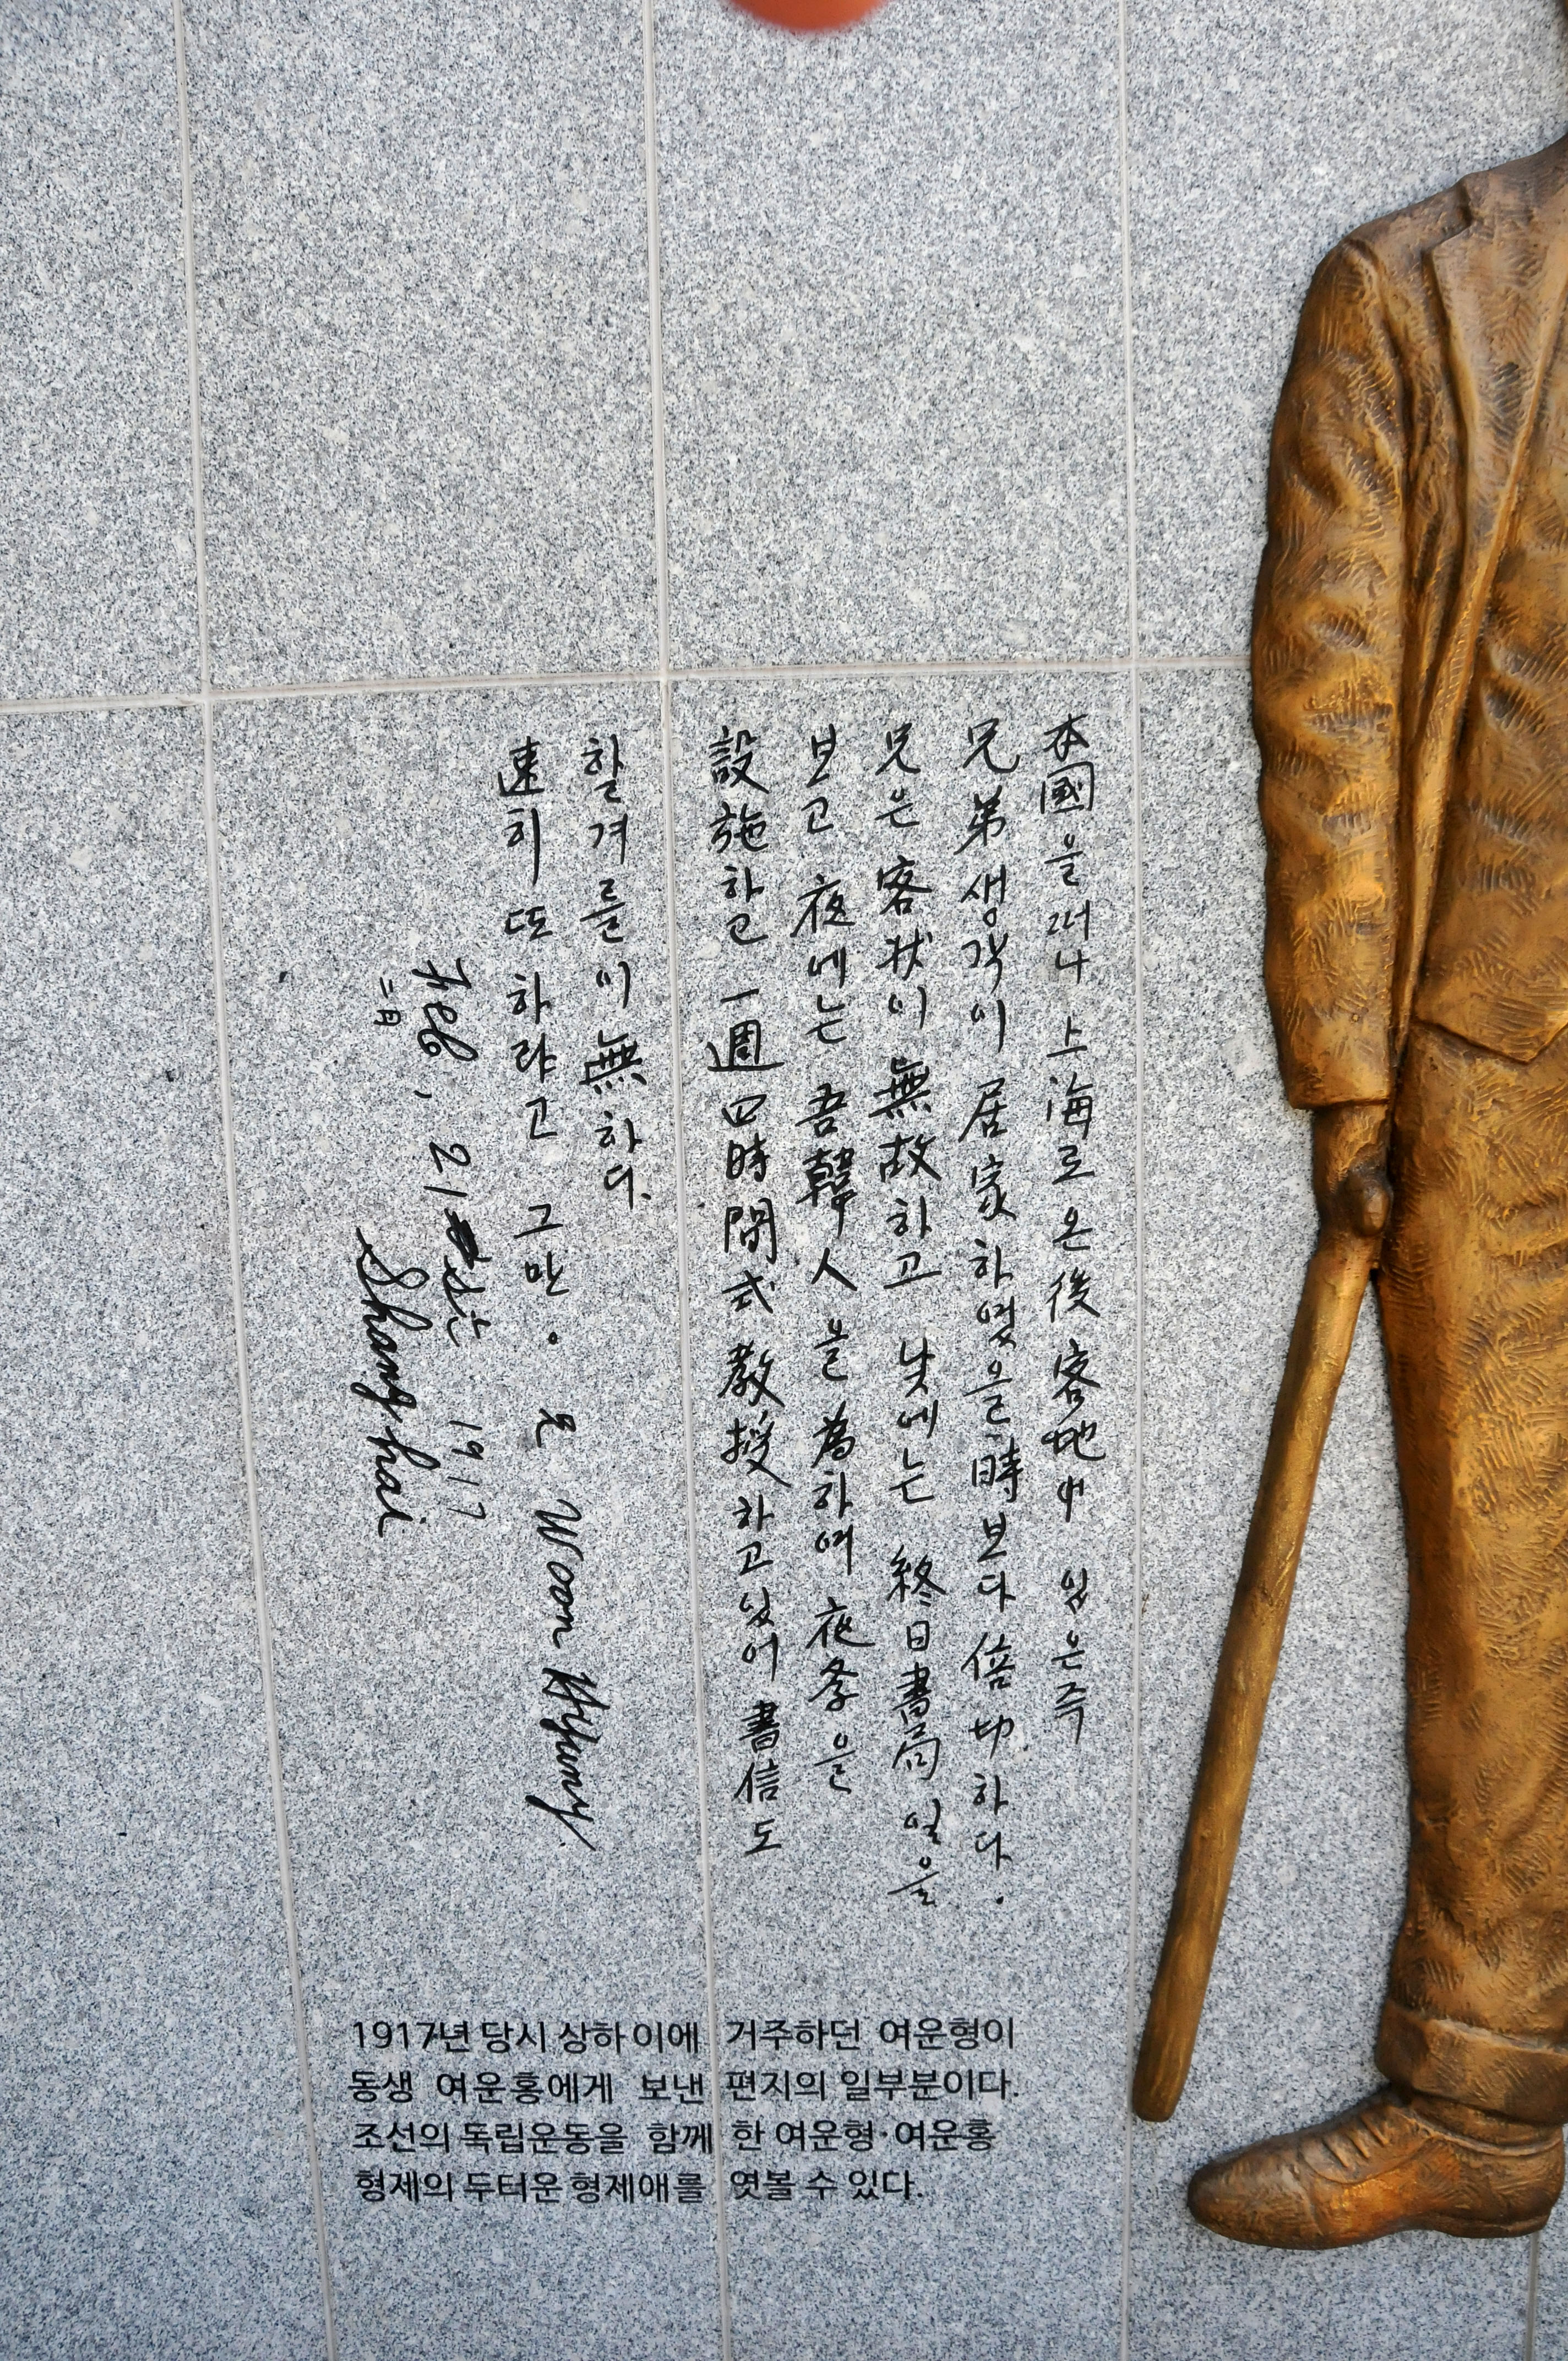 本國을 떠나 上海로 온 後 客地中 있은 즉
兄弟생각이 居家하였을 時보다 倍切하다.
兄은 客狀이 無故하고 낮에는 終日 書局 일을
보고 夜에는 吾韓人을 為하여 夜學을
設施하고 一週 四時間式 教授하고 있어 書信도
할 겨를이 無하다.
速히 또 하랴고 그만. 兄 Woon Hyung.
Feb, 21 1917
二月
Shanghai
1917년 당시 상하이에 거주하던 여운형이
동생 여운홍에게 보낸 편지의 일부분이다.
조선의 독립운동을 함께 한 여운형·여운홍
형제의 두터운 형제애를 엿볼 수 있다.